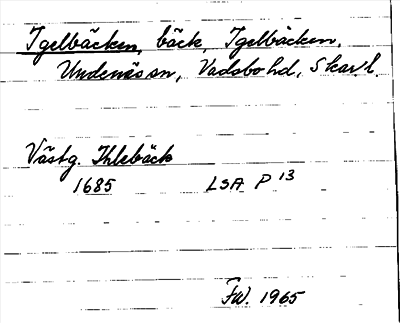 Igelbäcken, bäck, Igelbäcken,
Undenäs sn, Vadsbo hd, Skar. l.
Västg. Ihlebäck
1685 LSA P 13
FW. 1965